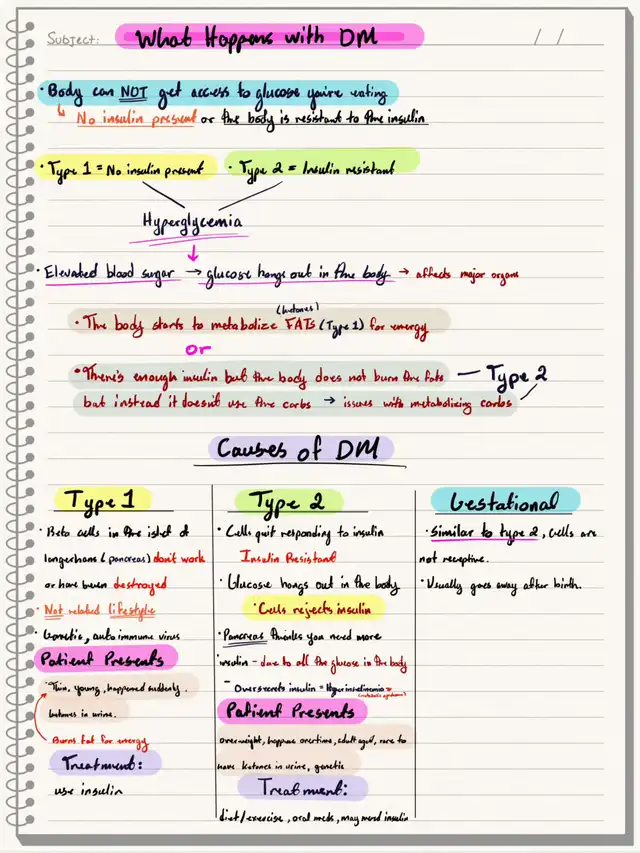 Subject: What Happens with DM / /
• Body can NOT get access to glucose you're eating
↳ No insulin present or the body is resistant to the insulin
• Type 1 = No insulin present • Type 2 = Insulin resistant
Hyperglycemia
↓
• Elevated blood sugar → glucose hangs out in the body → affects major organs
(ketones)
• The body starts to metabolize FATs (Type 1) for energy
or
• There's enough insulin but the body does not burn the fats — Type 2
but instead it doesn't use the carbs → issues with metabolizing carbs
Causes of DM
Type 1
• Beta cells in the islet of
langerhans (pancreas) don't work
or have been destroyed
• Not related lifestyle
• Genetic, auto immune virus
Patient Presents
• Thin, young, happened suddenly.
ketones in urine.
Burns fat for energy
Treatment:
use insulin
Type 2
• Cells quit responding to insulin
Insulin Resistant
• Glucose hangs out in the body
• Cells rejects insulin
• Pancreas thinks you need more
insulin - due to all the glucose in the body
- Oversecrets insulin = Hyperinsulinemia =
(metabolic syndrome)
Patient Presents
overweight, happens overtime, adult aged, rare to
have ketones in urine, genetic
Treatment:
diet/exercise, oral meds, may need insulin
Gestational
• Similar to type 2, cells are
not receptive.
• Usually goes away after birth.